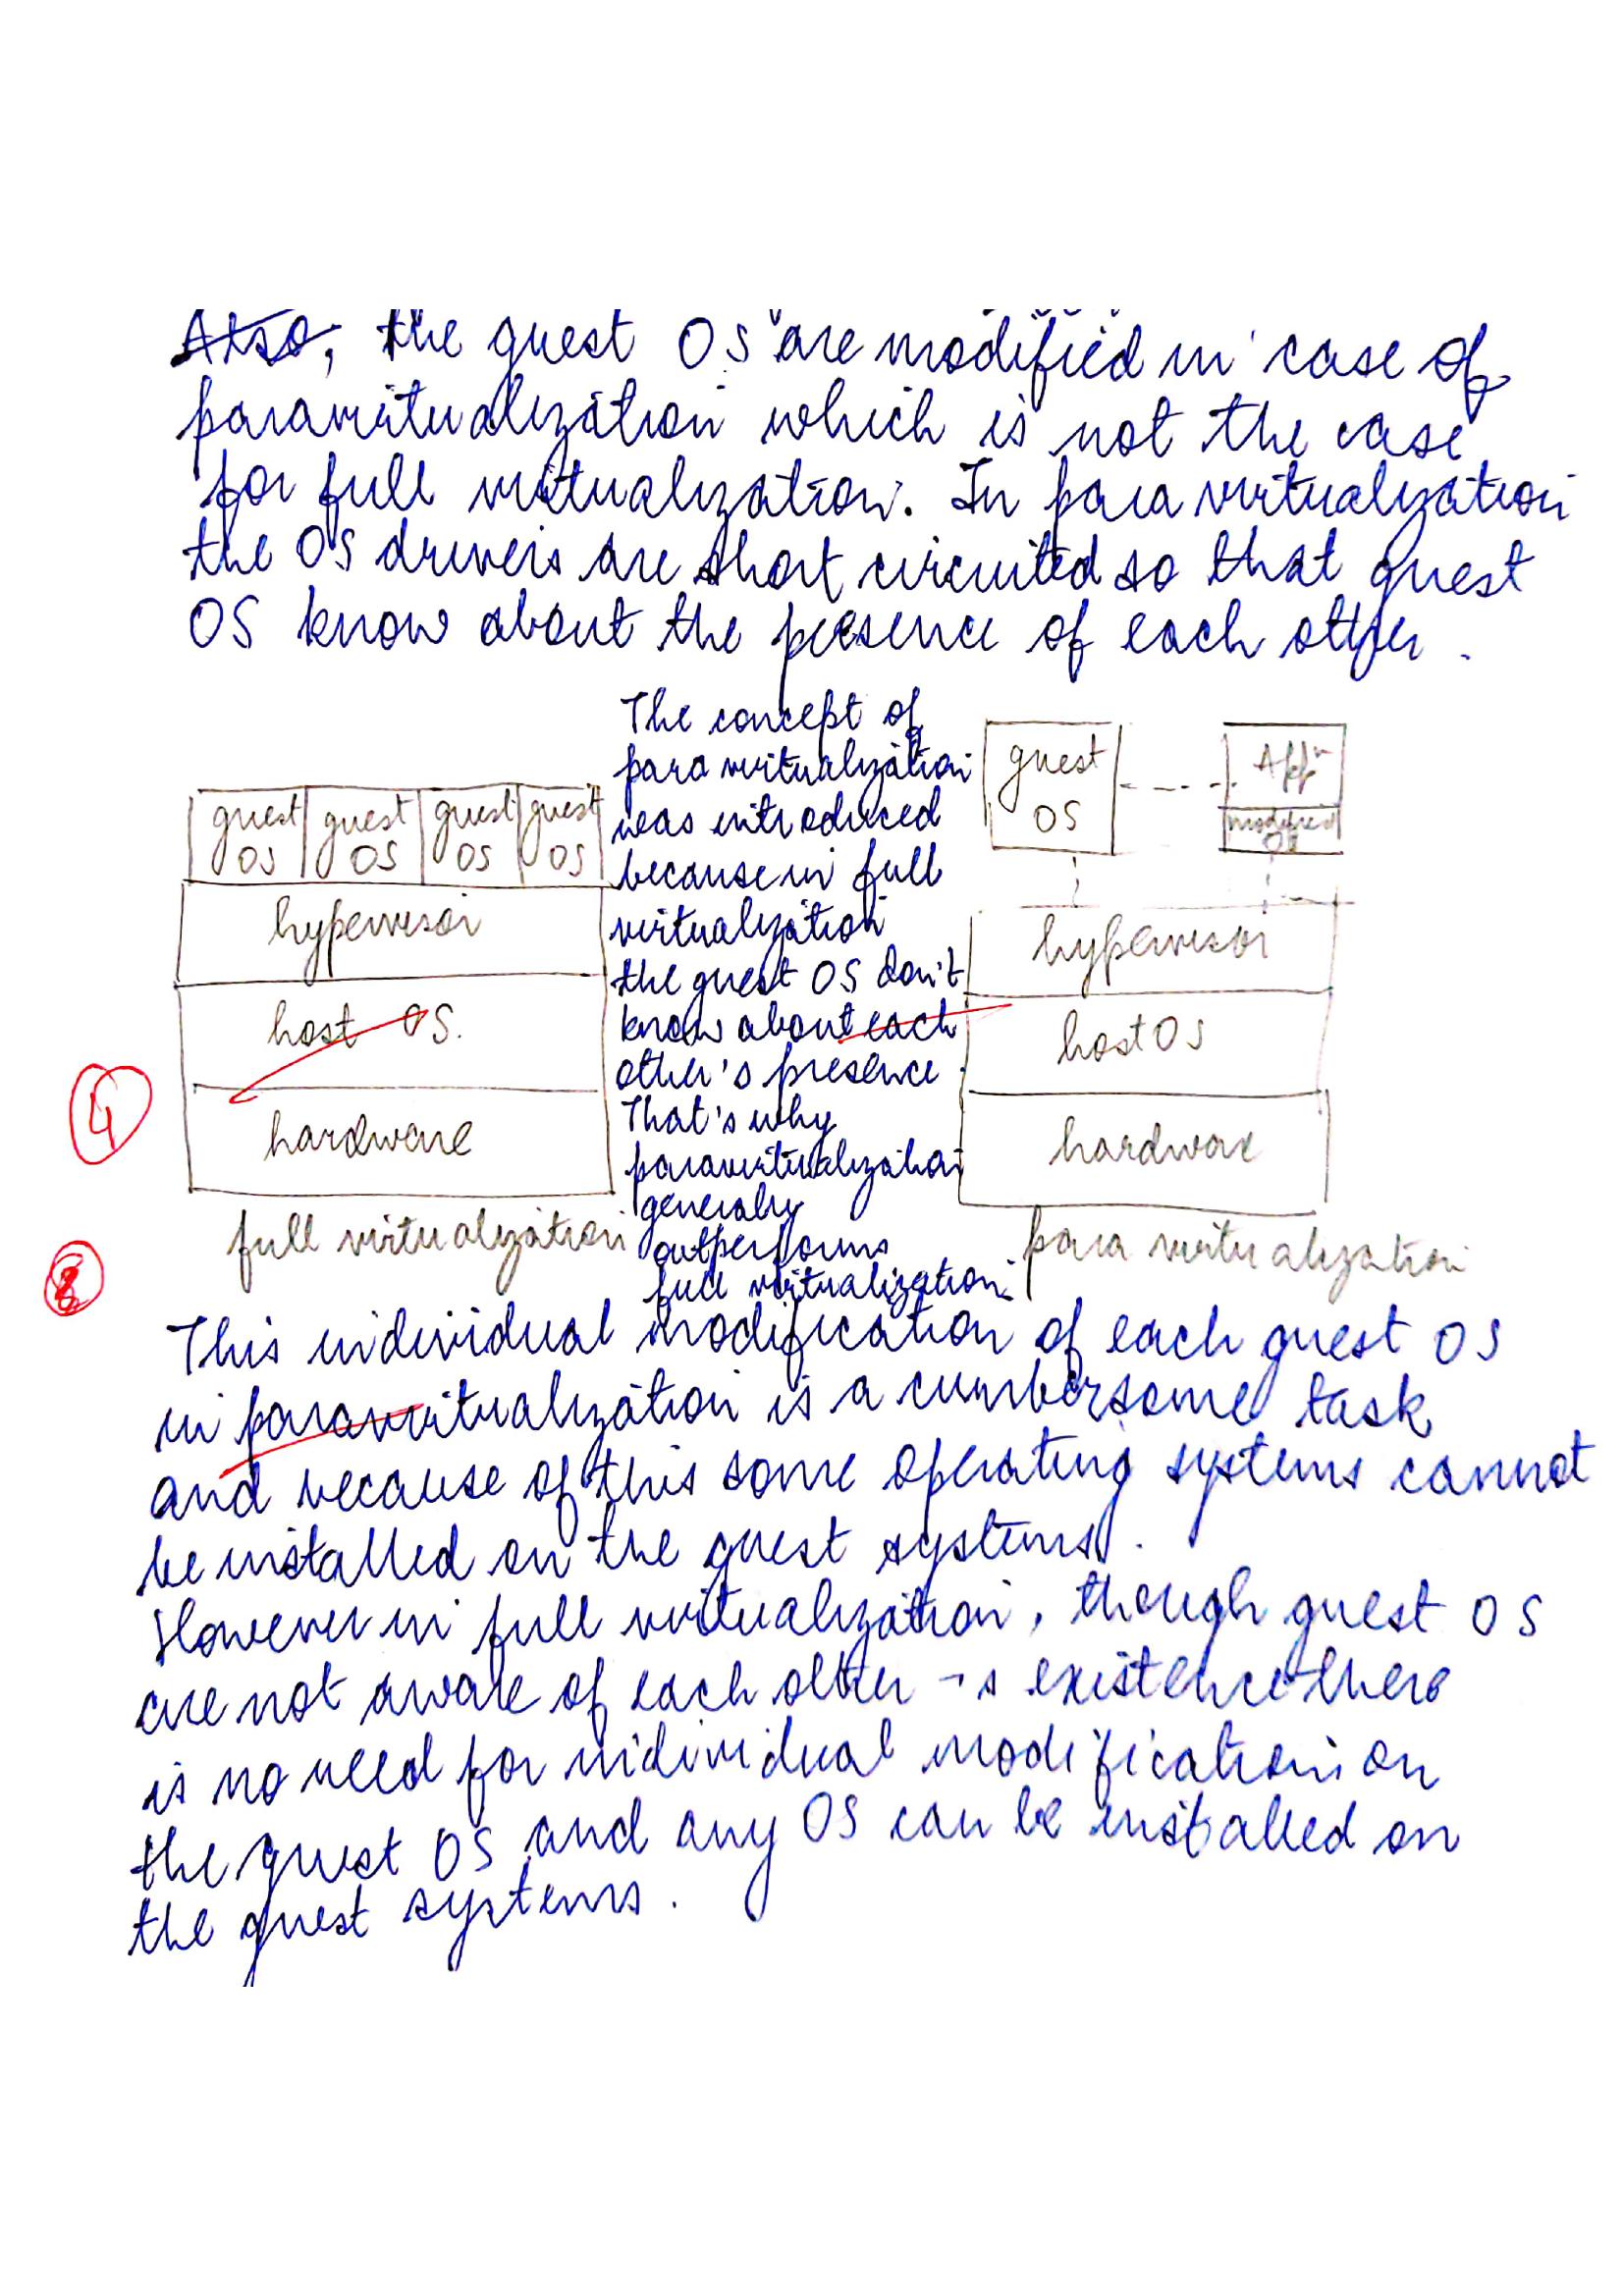 Also, the guest OS are modified in case of
paravirtualization which is not the case
for full virtualization. In para virtualization
the OS drivers are short circuited so that guest
OS know about the presence of each other.
guest OS
guest OS
guest OS
guest OS
hypervisor
host OS.
hardware
full virtualization
The concept of
para virtualization
was introduced
because in full
virtualization
the guest OS don't
know about each
other's presence.
That's why
paravirtualization
generally
outperforms
full virtualization.
guest
OS
Appn
modified
OS
hypervisor
host OS
hardware
para virtualization
4
This individual modification of each guest OS
in paravirtualization is a cumbersome task
and because of this some operating systems cannot
be installed on the guest systems.
However in full virtualization, though guest OS
are not aware of each other's existence there
is no need for individual modification on
the guest OS and any OS can be installed on
the guest systems.